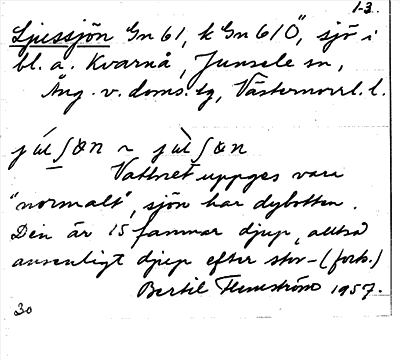 13.
Ljussjön Gn 61, k Gn 61 Ö", sjö i
bl. a. Kvarnå, Junsele sn,
Ång. v. doms. tg, Västernorrl. l.
júlʃön ~ jùlʃön
Vattnet uppges vara
"normalt", sjön har dybotten.
Den är 15 famnar djup, alltså
ansenligt djup efter stor- (forts.)
Bertil Flemström 1957.
30